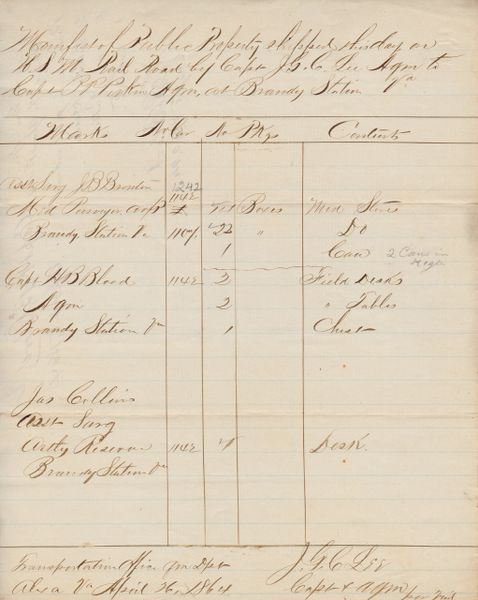 Manifest of Public Property shipped this day on
U.S.M. Rail Road by Capt J.G.C. Lee Aqm to
Capt Aqm, at Brandy Station Va
Marks No Car No Pkgs Contents
Asst Surg J.B. 1242
Med Purveyor 1142 Boxes Med Stores
Brandy Station Va 1107 22 " Do
1 Can 2 Cans in
Capt H B Blood 1142 2 Field Desks
Aqm 2 " Tables
Brandy Station Va 1 Chest
Jas Collins
Asst Surg
Artly Reserve 1142 1 Desk.
Brandy Station Va
Transportation Office qm Dpt
Alexa Va April 26, 1864
J.G.C. Lee
Capt & Aqm